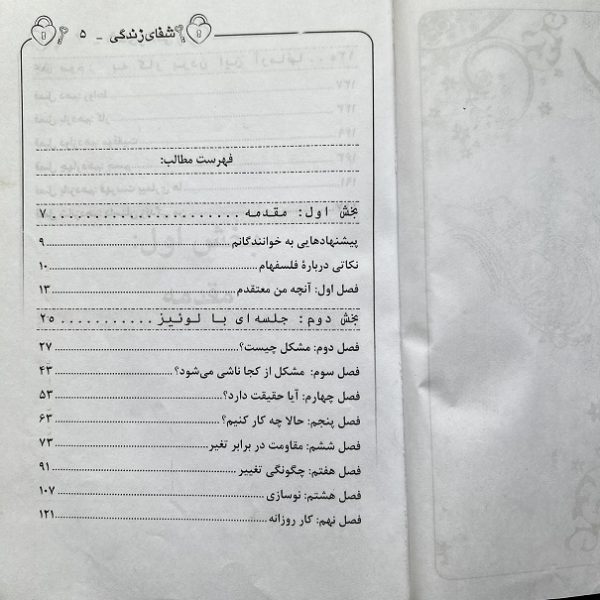 شفای زندگی - ۵
فهرست مطالب:
بخش اول: مقدمه ..................... ۷
پیشنهادهایی به خوانندگانم ..................... ۹
نکاتی دربارهٔ فلسفهام ..................... ۱۰
فصل اول: آنچه من معتقدم ..................... ۱۳
بخش دوم: جلسه‌ای با لوئیز ........... ۲۵
فصل دوم: مشکل چیست؟ ..................... ۲۷
فصل سوم: مشکل از کجا ناشی می‌شود؟ ..................... ۴۳
فصل چهارم: آیا حقیقت دارد؟ ..................... ۵۳
فصل پنجم: حالا چه کار کنیم؟ ..................... ۶۳
فصل ششم: مقاومت در برابر تغیر ..................... ۷۳
فصل هفتم: چگونگی تغییر ..................... ۹۱
فصل هشتم: نوسازی ..................... ۱۰۷
فصل نهم: کار روزانه ..................... ۱۲۱